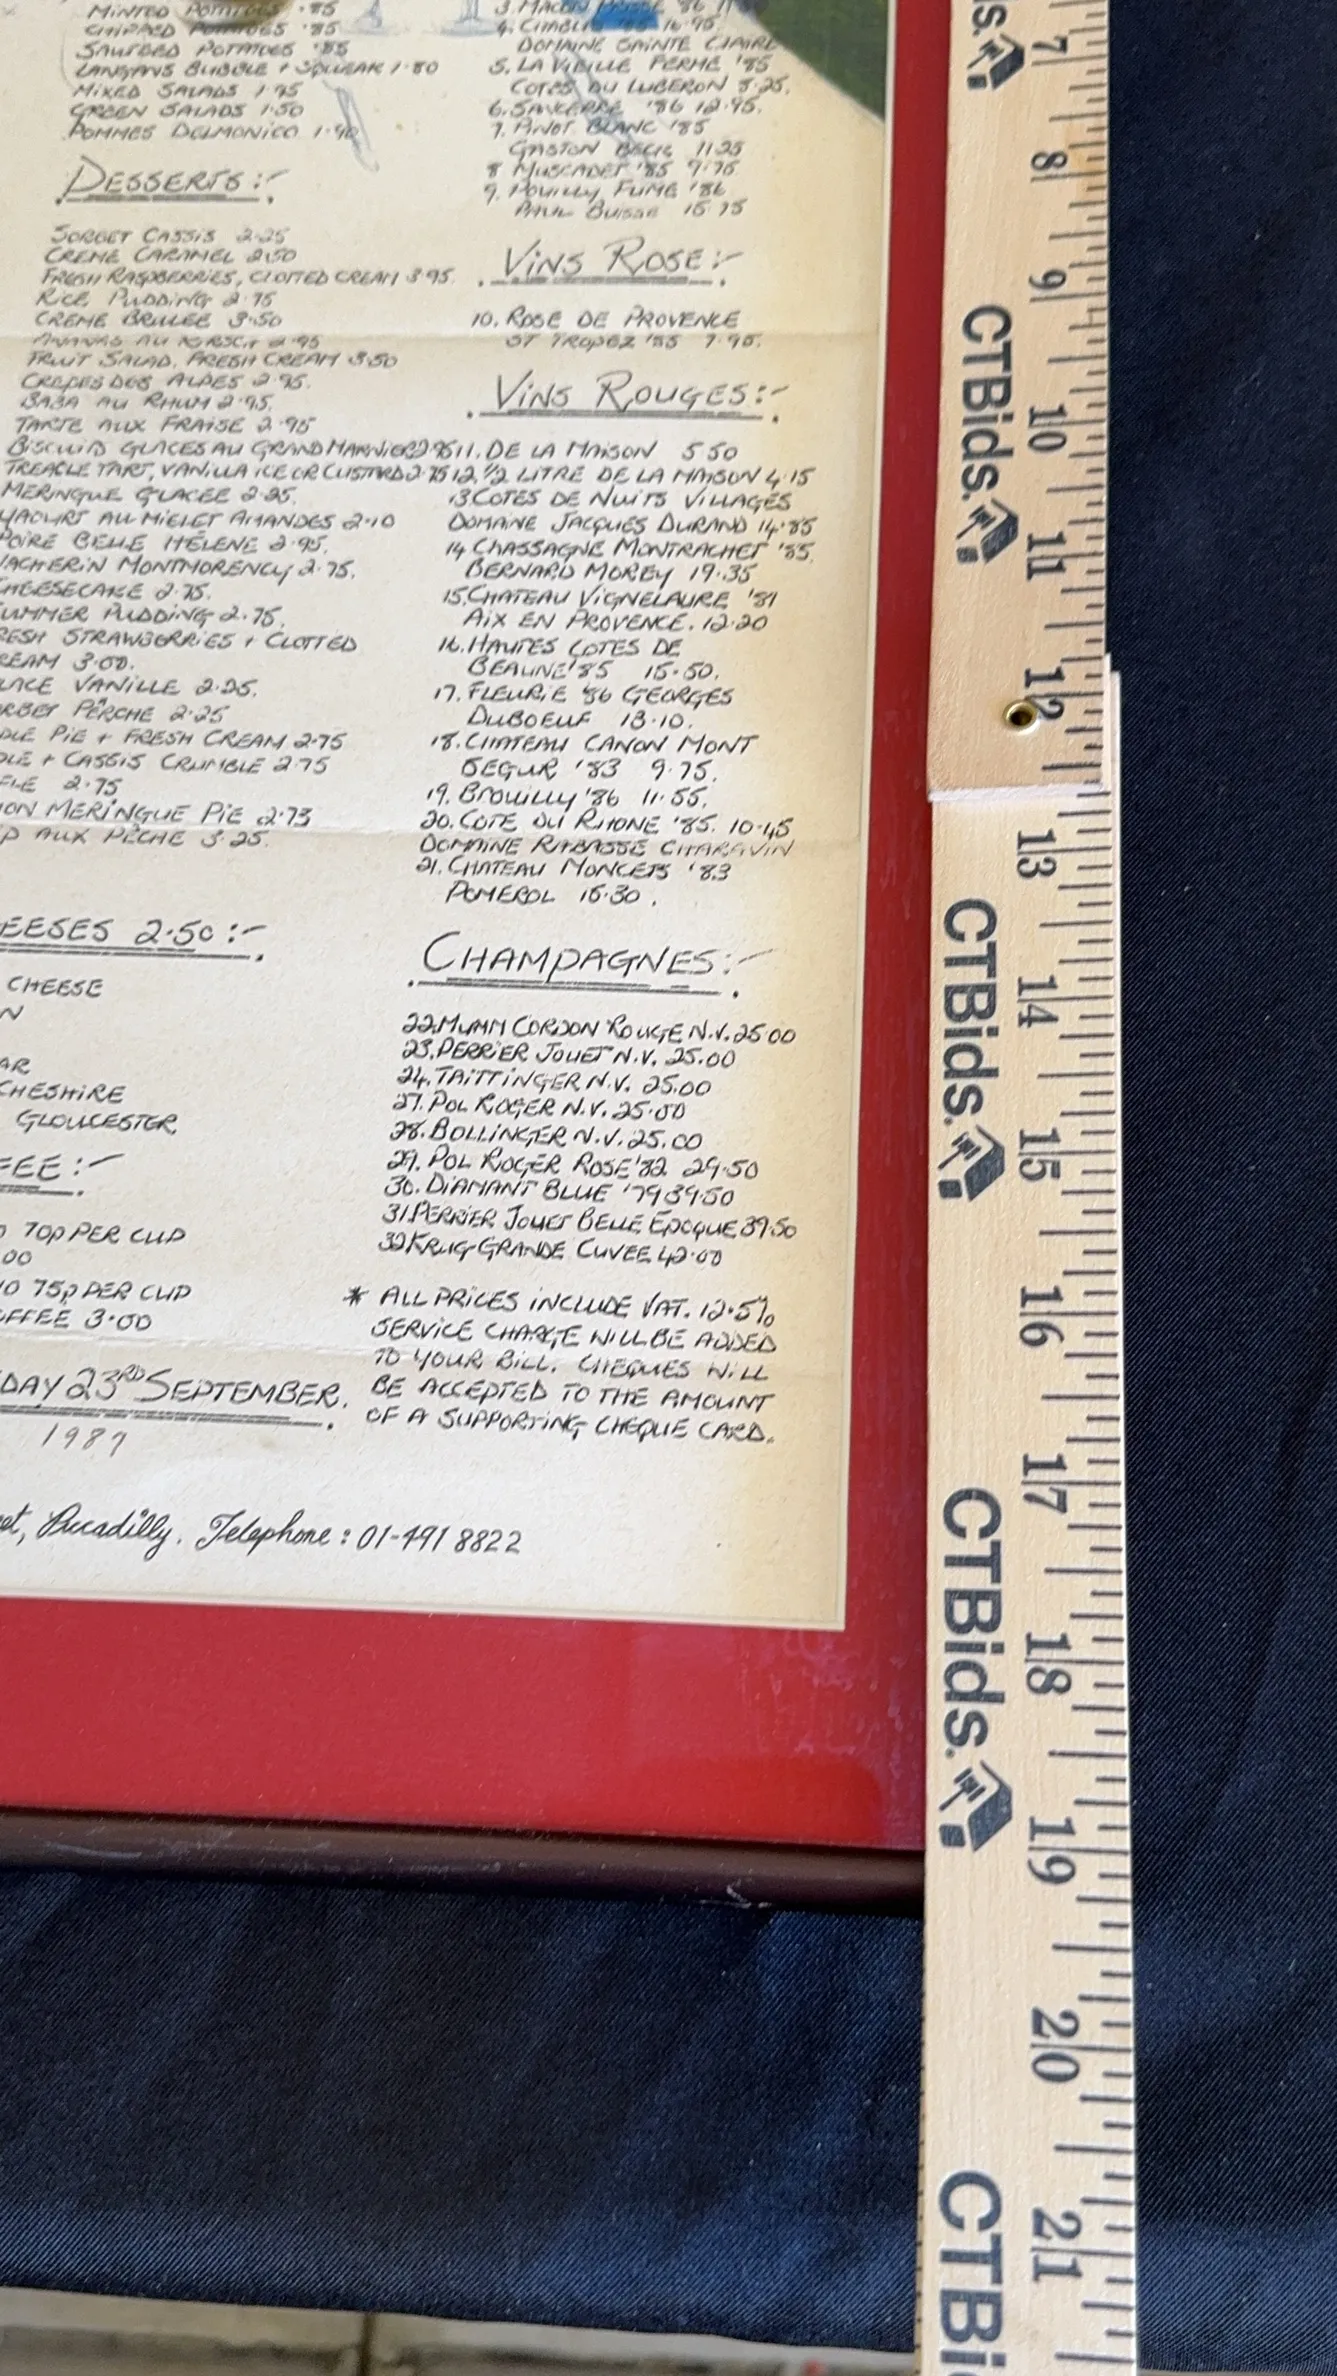 MINTED POTATOES .85
CHIPPED POTATOES .85
SAUTEED POTATOES .85
LANGANS BUBBLE + SQUEAK 1.80
MIXED SALADS 1.95
GREEN SALADS 1.50
POMMES DELMONICO 1.90
DESSERTS:-
SORBET CASSIS 2.25
CREME CARAMEL 2.50
FRESH RASPBERRIES, CLOTTED CREAM 3.95.
RICE PUDDING 2.75
CREME BRULEE 3.50
ANANAS AU KIRSCH 2.95
FRUIT SALAD, FRESH CREAM 3.50
CREPES DES ALPES 2.95.
BABA AU RHUM 2.95.
TARTE AUX FRAISE 2.95
BISCUITS GLACES AU GRAND MARNIER 2.95
TREACLE TART, VANILLA ICE OR CUSTARD 2.75
MERINGUE GLACEE 2.25.
YAOURT AU MIEL ET AMANDES 2.10
POIRE BELLE HÉLENE 2.95.
VACHERIN MONTMORENCY 2.75.
CHEESECAKE 2.75.
SUMMER PUDDING 2.75.
RESH STRAWBERRIES + CLOTTED
REAM 3.00.
LACE VANILLE 2.25.
ORBET PÊCHE 2.25
PLE PIE + FRESH CREAM 2.75
PLE + CASSIS CRUMBLE 2.75
FLE 2.75
ON MERINGUE PIE 2.75
P AUX PÊCHE 3.25.
EESES 2.50:-
CHEESE
N
AR
CHESHIRE
GLOUCESTER
FEE:-
O 70p PER CUP
00
NO 75p PER CUP
OFFEE 3.00
DAY 23RD SEPTEMBER.
1987
3. MACON '86
4. CHABLIS '85 16.95.
DOMAINE SAINTE CLAIRE
5. LA VIEILLE FERME '85
COTES DU LUBERON 8.25.
6. SANCERRE '86 12.95.
7. PINOT BLANC '85
GASTON BECK 11.25
8 MUSCADET '85 9.75
9. POUILLY FUME '86
PAUL BUISSE 15.75
VINS ROSE:-
10. ROSE DE PROVENCE
ST TROPEZ '85 7.95.
VINS ROUGES:-
11. DE LA MAISON 5.50
12. 1/2 LITRE DE LA MAISON 4.15
13 COTES DE NUITS VILLAGES
DOMAINE JACQUES DURAND 14.85
14 CHASSAGNE MONTRACHET '85.
BERNARD MOREY 19.35
15. CHATEAU VIGNELAURE '81
AIX EN PROVENCE. 12.20
16. HAUTES COTES DE
BEAUNE '85 15.50.
17. FLEURIE '86 GEORGES
DUBOEUF 13.10.
18. CHATEAU CANON MONT
SEGUR '83 9.75.
19. BROUILLY '86 11.55.
20. COTE DU RHONE '85. 10.45
DOMAINE RABASSE CHARAVIN
21. CHATEAU MONCETS '83
POMEROL 15.30.
CHAMPAGNES:-
22. MUMM CORDON ROUGE N.V. 25.00
23. PERRIER JOUET N.V. 25.00
24. TAITTINGER N.V. 25.00
27. POL ROGER N.V. 25.00
28. BOLLINGER N.V. 25.00
29. POL ROGER ROSE '82 29.50
30. DIAMANT BLUE '79 39.50
31 PERRIER JOUET BELLE EPOQUE 39.50
32 KRUG GRANDE CUVEE 42.00
* ALL PRICES INCLUDE VAT. 12.5%
SERVICE CHARGE WILL BE ADDED
TO YOUR BILL. CHEQUES WILL
BE ACCEPTED TO THE AMOUNT
OF A SUPPORTING CHEQUE CARD.
et, Piccadilly. Telephone: 01-491 8822
7 8 9 10 11 12 13 14 15 16 17 18 19 20 21
ds.
CTBids.
CTBids.
CTBids.
CTBi